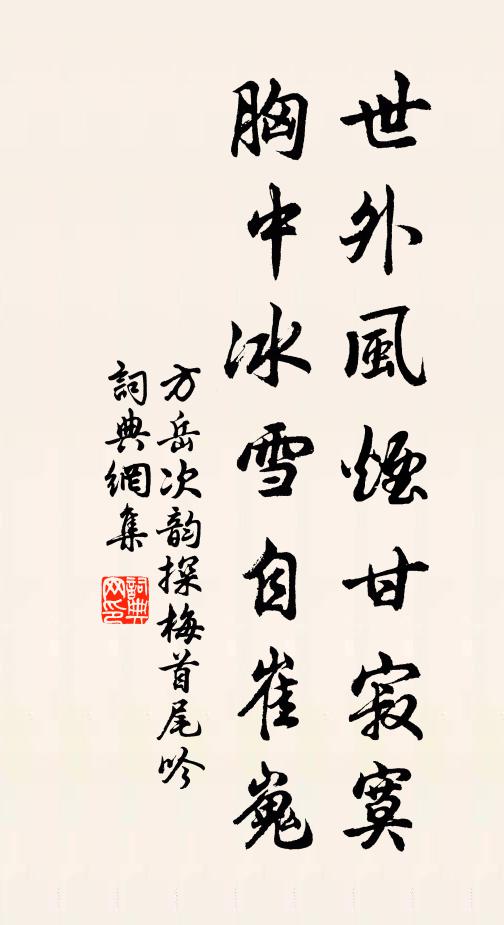 世外風煙甘寂寞
胸中冰雪自崔嵬
方岳次韵探梅首尾吟
詞典網集
詞典网印